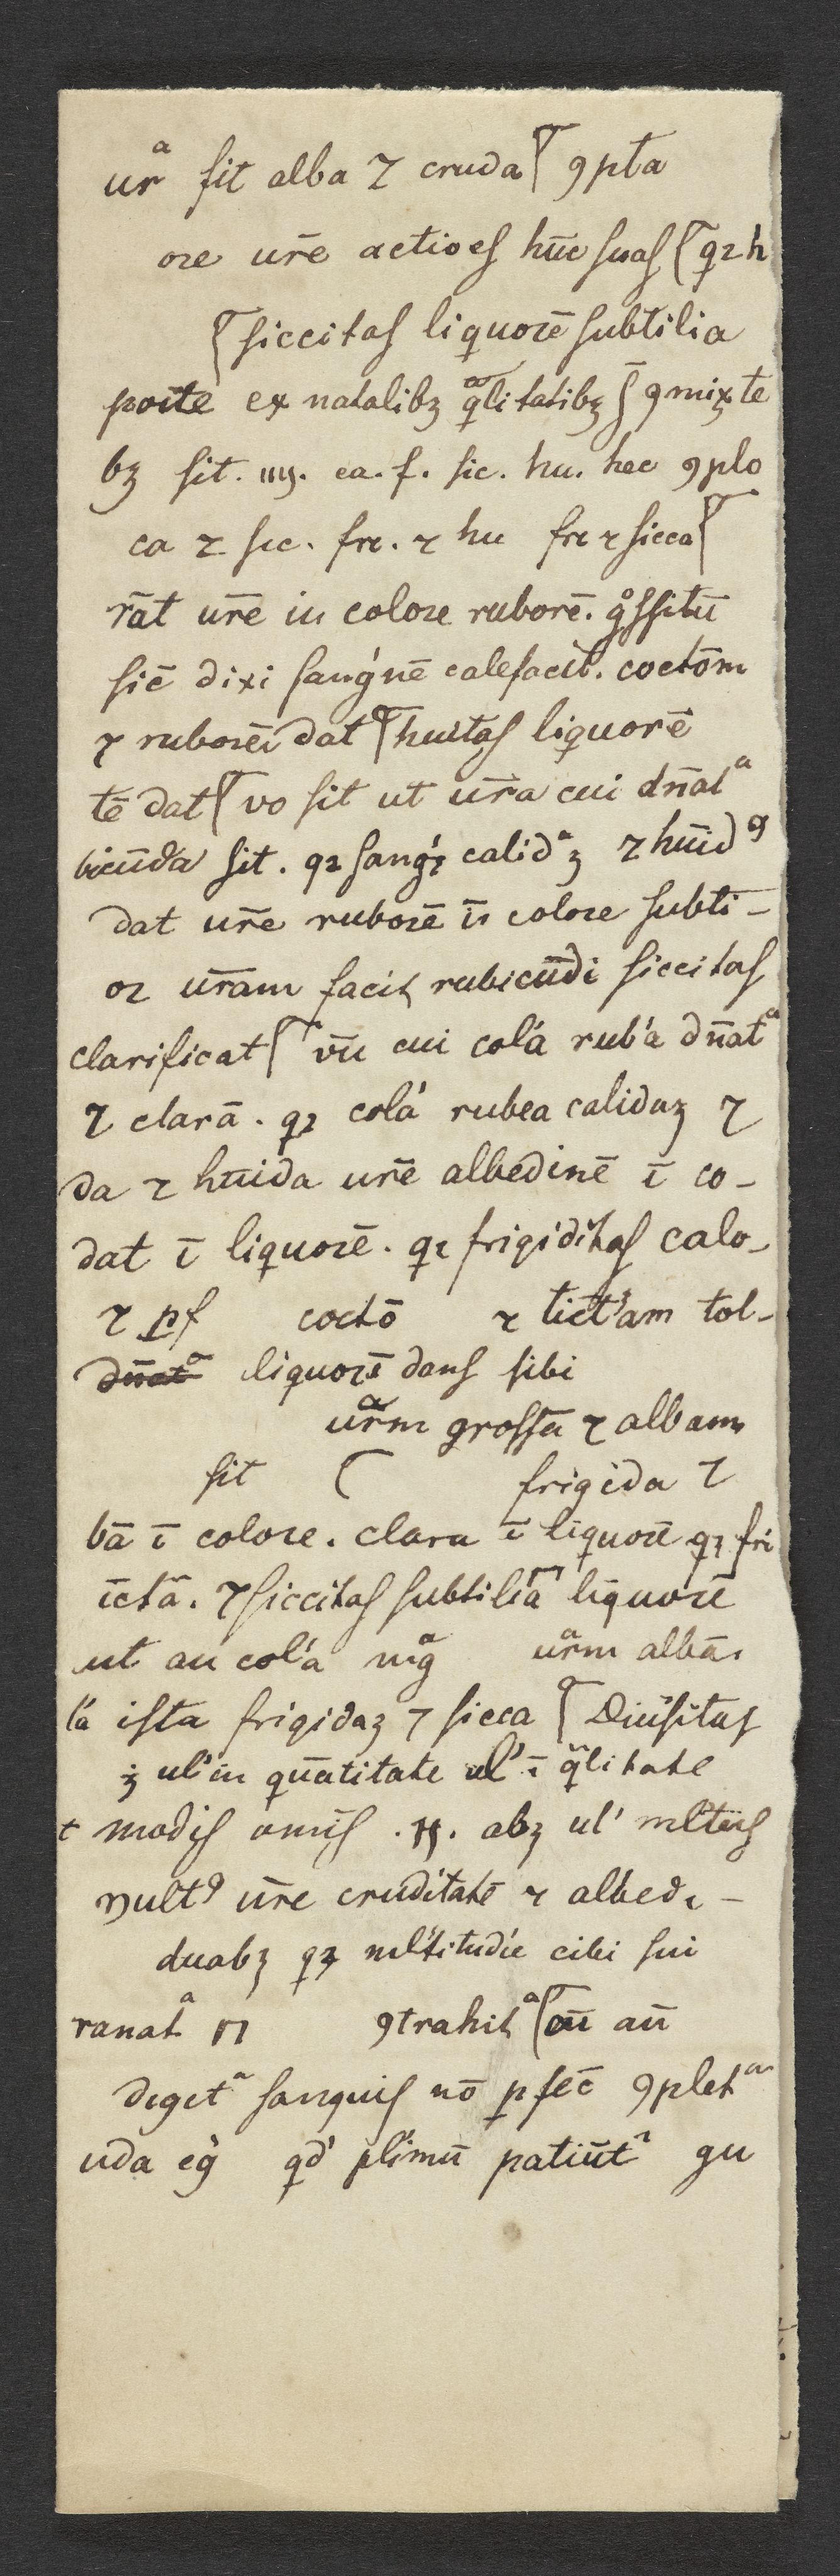 urᵃ fit alba ⁊ cruda ꝯpta
oꝛe ur̄e actioeſ hūc ſuaſ qꝛ h
ſiccitaſ liquoꝛē ſubtilia
poīte ex natalibꝫ qᵃlitatibꝫ ꝯmixte
bꝫ ſit. ca. f. ſic. hu. hec ꝯplo
ca ⁊ ſic. fri. ⁊ hu fri ⁊ ſicca
r̄at ur̄e in coloꝛe ruborē. gᵒſſitū
ſic̄ dixi ſang'nē calefacit. coctōm
⁊ ruboꝛē dat huītaſ liquorē
tē dat vo fit ut ur̄a cui dn̄atᵃ
bicūda ſit. qꝛ calid ⁊ hūidꝰ
dat ur̄e ruboꝛē ī coloꝛe ſubti-
oꝛ ur̄am facit rubicūdi ſiccitaſ
clarificat vn̄ cui col'a rub'a dn̄atᵃ
⁊ clarā. qꝛ col'a rubea calidaꝫ ⁊
da ⁊ hūida ur̄e albedinē ī co-
dat ī liquoꝛē. qꝛ frigiditaſ calo-
⁊ ꝑſ coctō ⁊ tict'am tol-
dn̄atᵃ liquoꝛē danſ ſibi
urᵃm groſſā ⁊ albam
fit frigida ⁊
bā ī coloꝛe. clara ī liquoꝛē qꝛ fri
īctā. ⁊ ſiccitaſ ſubtilia liquoꝛē
ut au col'a mᵃg urᵃm albā.
l'a iſta frigidaꝫ ⁊ ſicca Diu'ſitaſ
ꝫ ul' in qūatitate ul' ī qᵃlitate
t modiſ om̄iſ . abꝫ ul' ml'tiſ
multꝰ ur̄e cruditatē ⁊ albedi-
duabꝫ qꝫ ml'titudīe cibi ſui
ranatᵃ n ꝯtrahitᵃ aū
degetᵃ ſanguiſ nō ꝑfec̄ ꝯpletᵃ
uda eg̊ qd' pl'imū patiūtᵃ gu